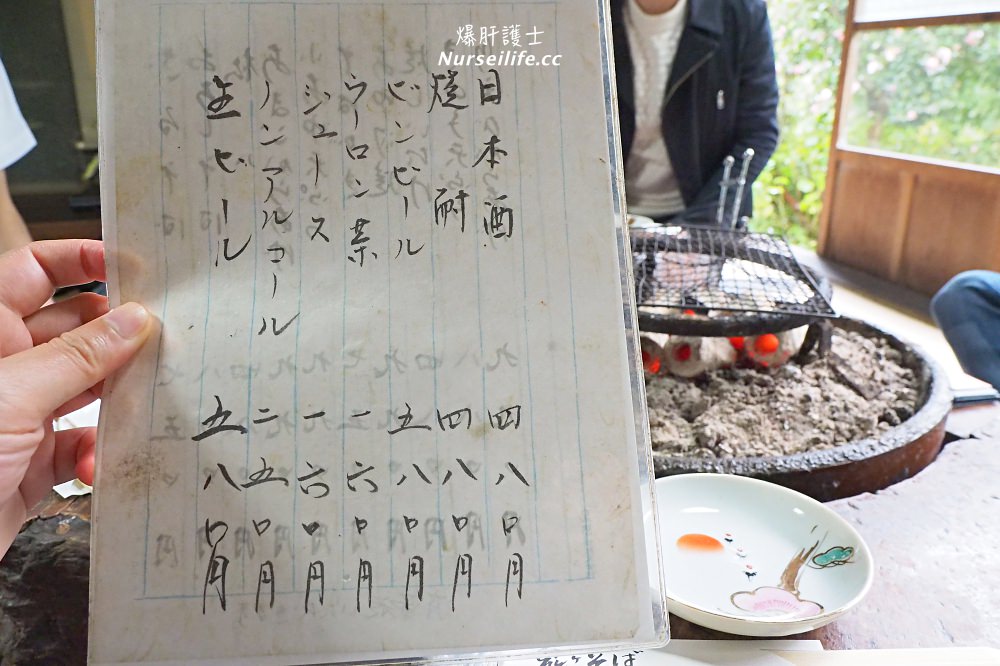 爆肝護士
Nurseilife.cc
日本酒 四八〇円
焼耐 四八〇円
ビンビール 五八〇円
ウーロン茶 一六〇円
ジュース 一六〇円
ノンアルコール 二五〇円
生ビール 五八〇円
そば